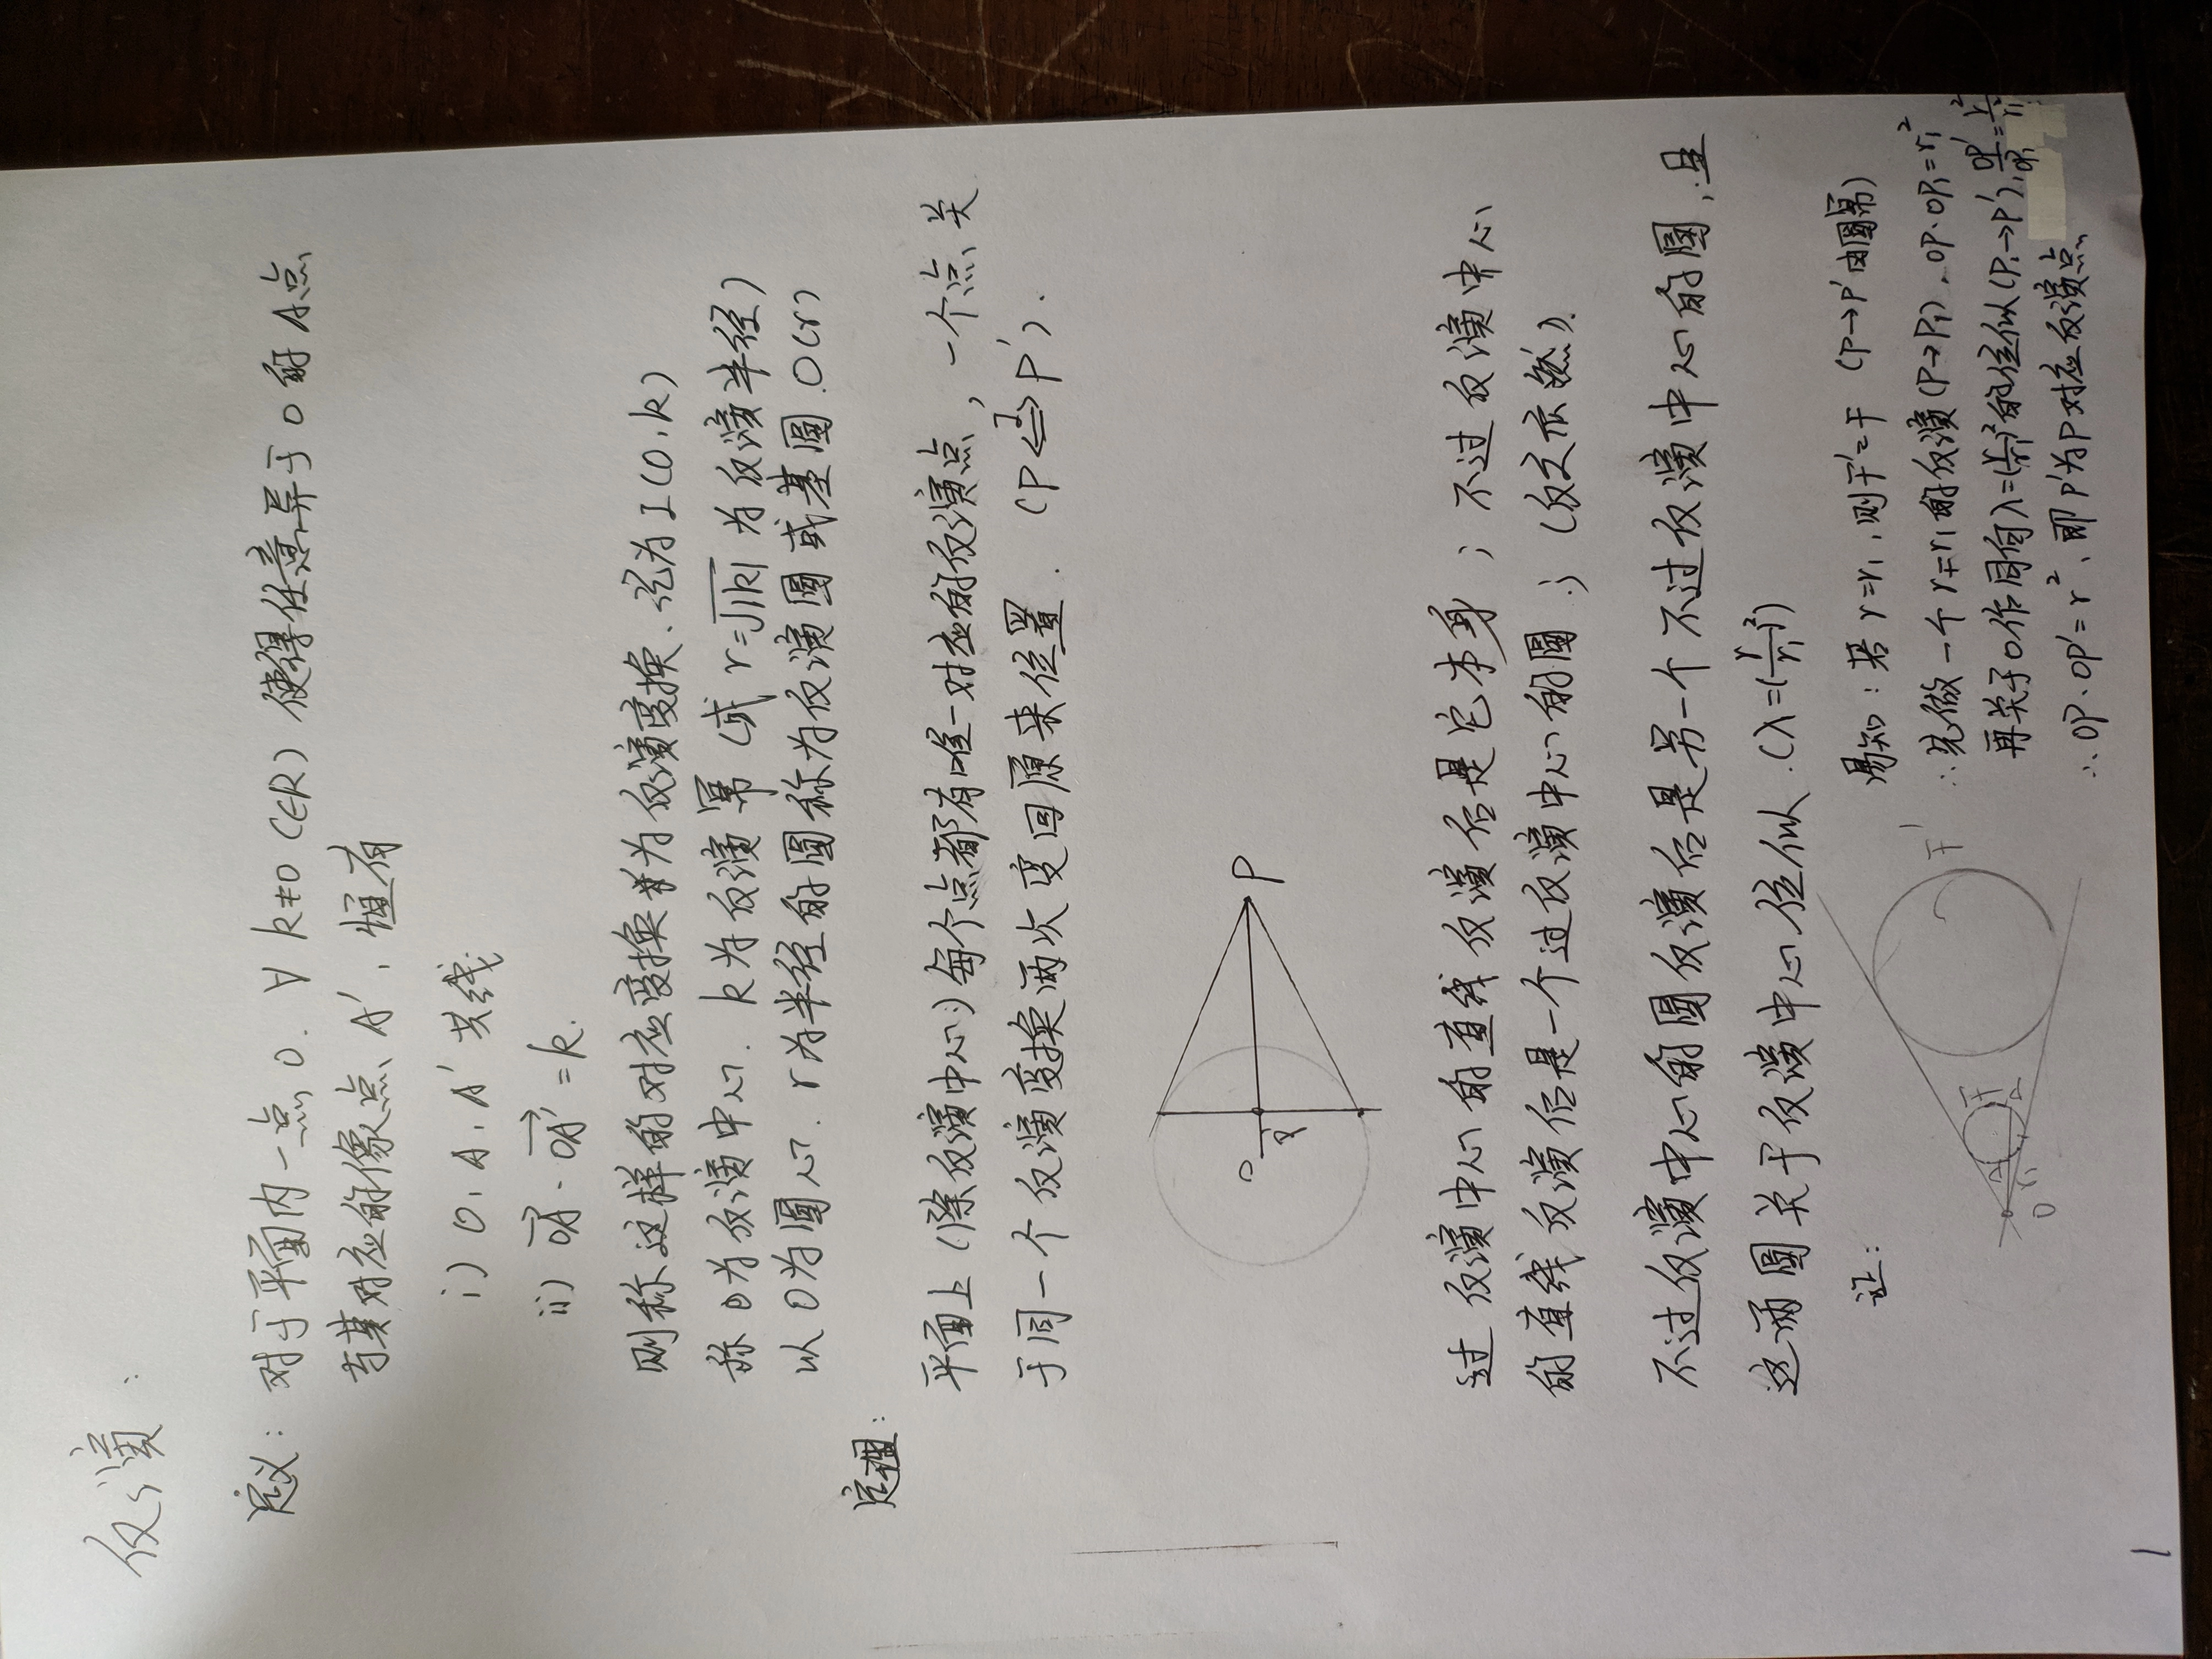 反演:
定义: 对于平面内一点O. ∀k≠0 (∈R) 使得任意异于O的A点
有其对应的像点A', 恒有
i) O, A, A' 共线
ii) OA⃗·OA'⃗=k.
则称这样的对应变换为反演变换、记为I(O,k)
称O为反演中心. k为反演幂 (或 r=√|k| 为反演半径)
以O为圆心. r为半径的圆称为反演圆或基圆.O(r)
定理:
平面上 (除反演中心) 每个点都有唯一对应的反演点, 一个点关
于同一个反演变换两次变回原来位置. (P⇔P').
O
P
过反演中心的直线反演后是它本身; 不过反演中心
的直线反演后是一个过反演中心的圆; (反之亦然).
不过反演中心的圆反演后是另一个不过反演中心的圆, 且
这两圆关于反演中心位似. (λ=(r/r₁)²)
证:
易知: 若r=r₁, 则Γ'=Γ (P→P'由圆幂)
∴先做一个r=r₁的反演(P→P₁), OP·OP₁=r₁²
再关于O作同向λ=(r/r₁)²的位似(P₁→P'), OP'/OP₁=r²/r₁²
∴OP·OP'=r², 即P'为P对应反演点
O
r₁
Γ
Γ'
1